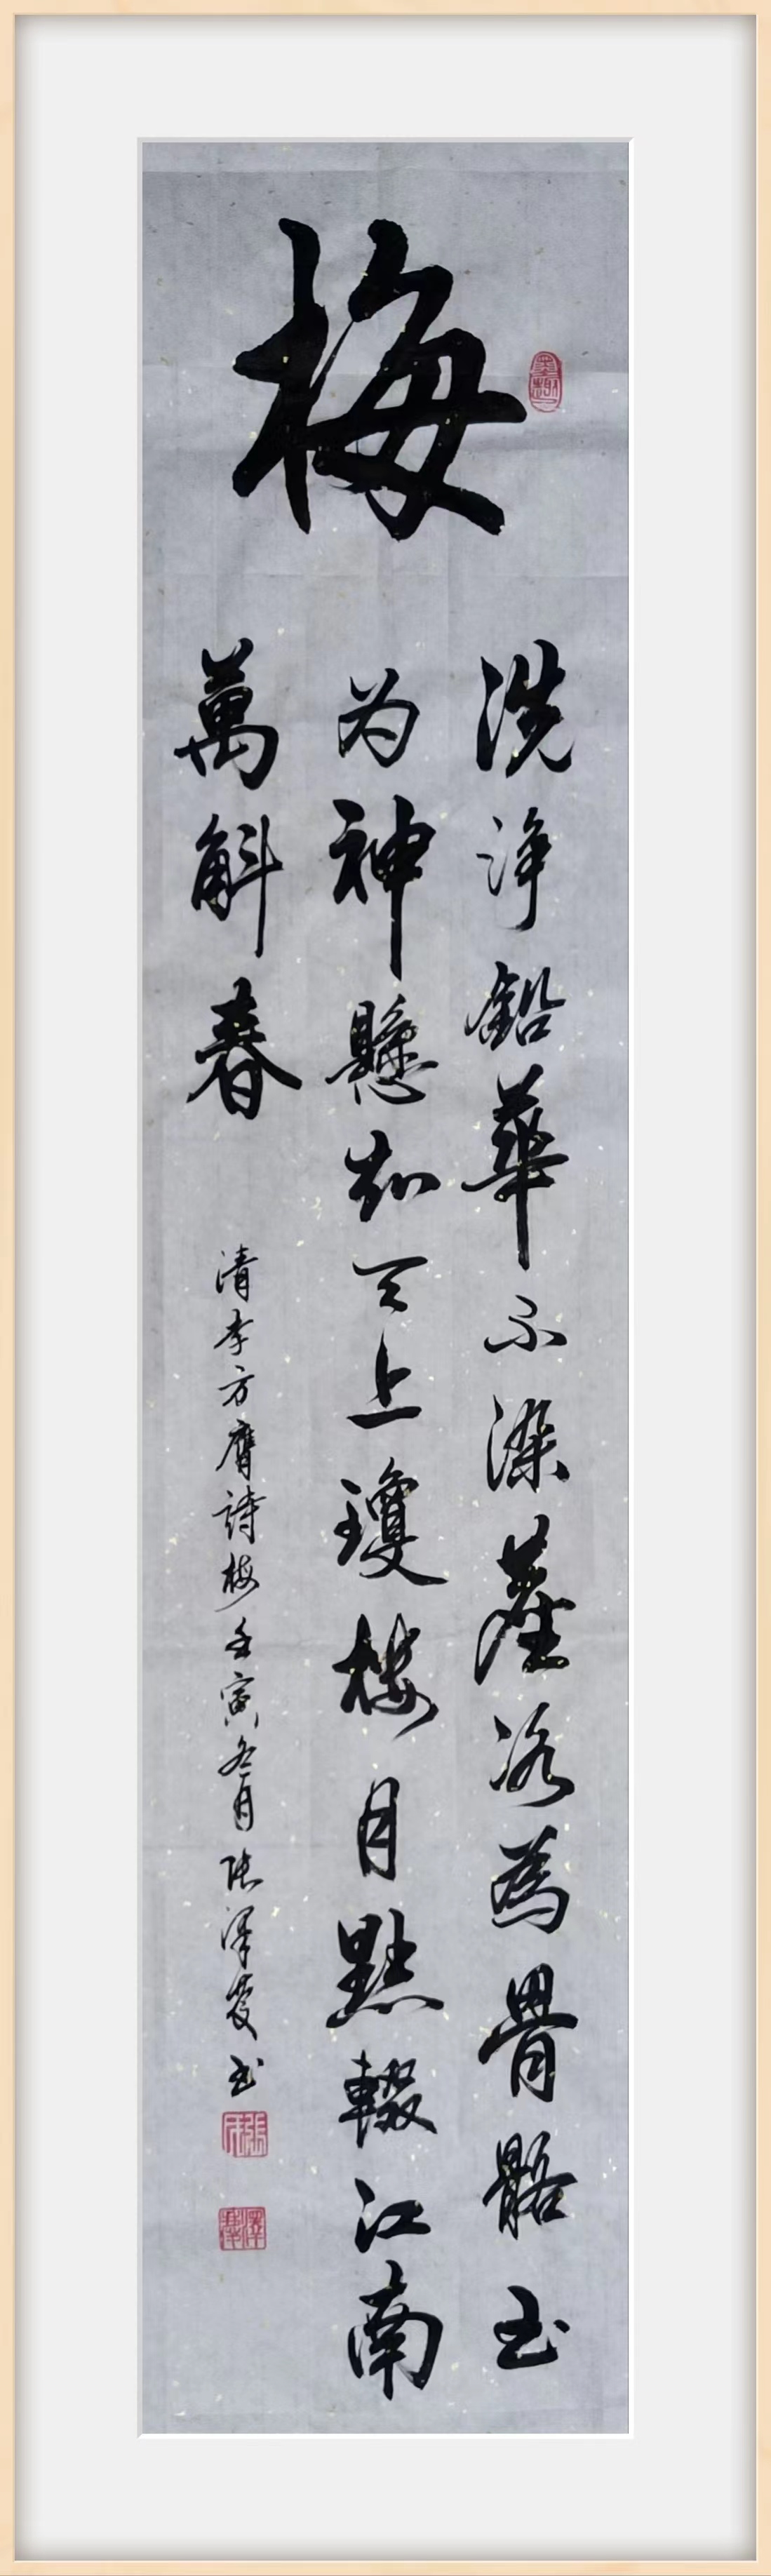 梅
洗淨鉛華不染塵冰為骨骼玉
为神懸知天上瓊楼月點輟江南
萬斛春
清李方膺詩梅壬寅冬月张泽书